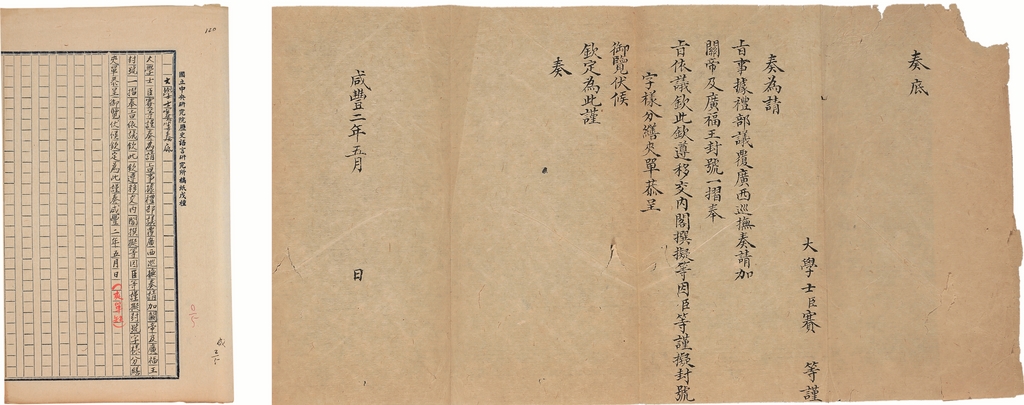 奏底
大學士臣賽 等謹
奏為請
旨事據禮部議覆廣西巡撫奏請加
關帝及廣福王封號一摺奉
旨依議欽此欽遵移交內閣撰擬等因臣等謹擬封號
字樣分繕夾單恭呈
御覽伏候
欽定為此謹
奏
咸豐二年五月 日
國立中央研究院歷史語言研究所稿紙戊種
大學士賽等奏底
大學士臣賽等謹奏為請旨事據禮部議覆廣西巡撫奏請加關帝及廣福王
封號一摺奉旨依議欽此欽遵移交內閣撰擬等因臣等謹擬封號字樣分繕
夾單恭呈御覽伏候欽定為此謹奏咸豐二年五月 日
120